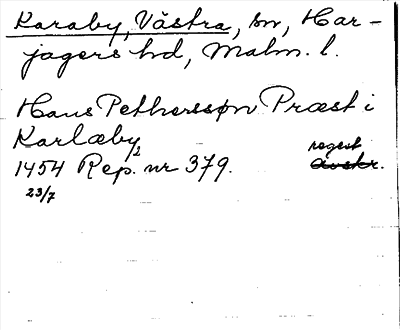 Karaby, Västra, sn, Har-
jagers hd, Malm. l.
Hans Pethersson Præst i
Karlæby
1454 Rep.2 nr 379. regest
23/7 avskr.